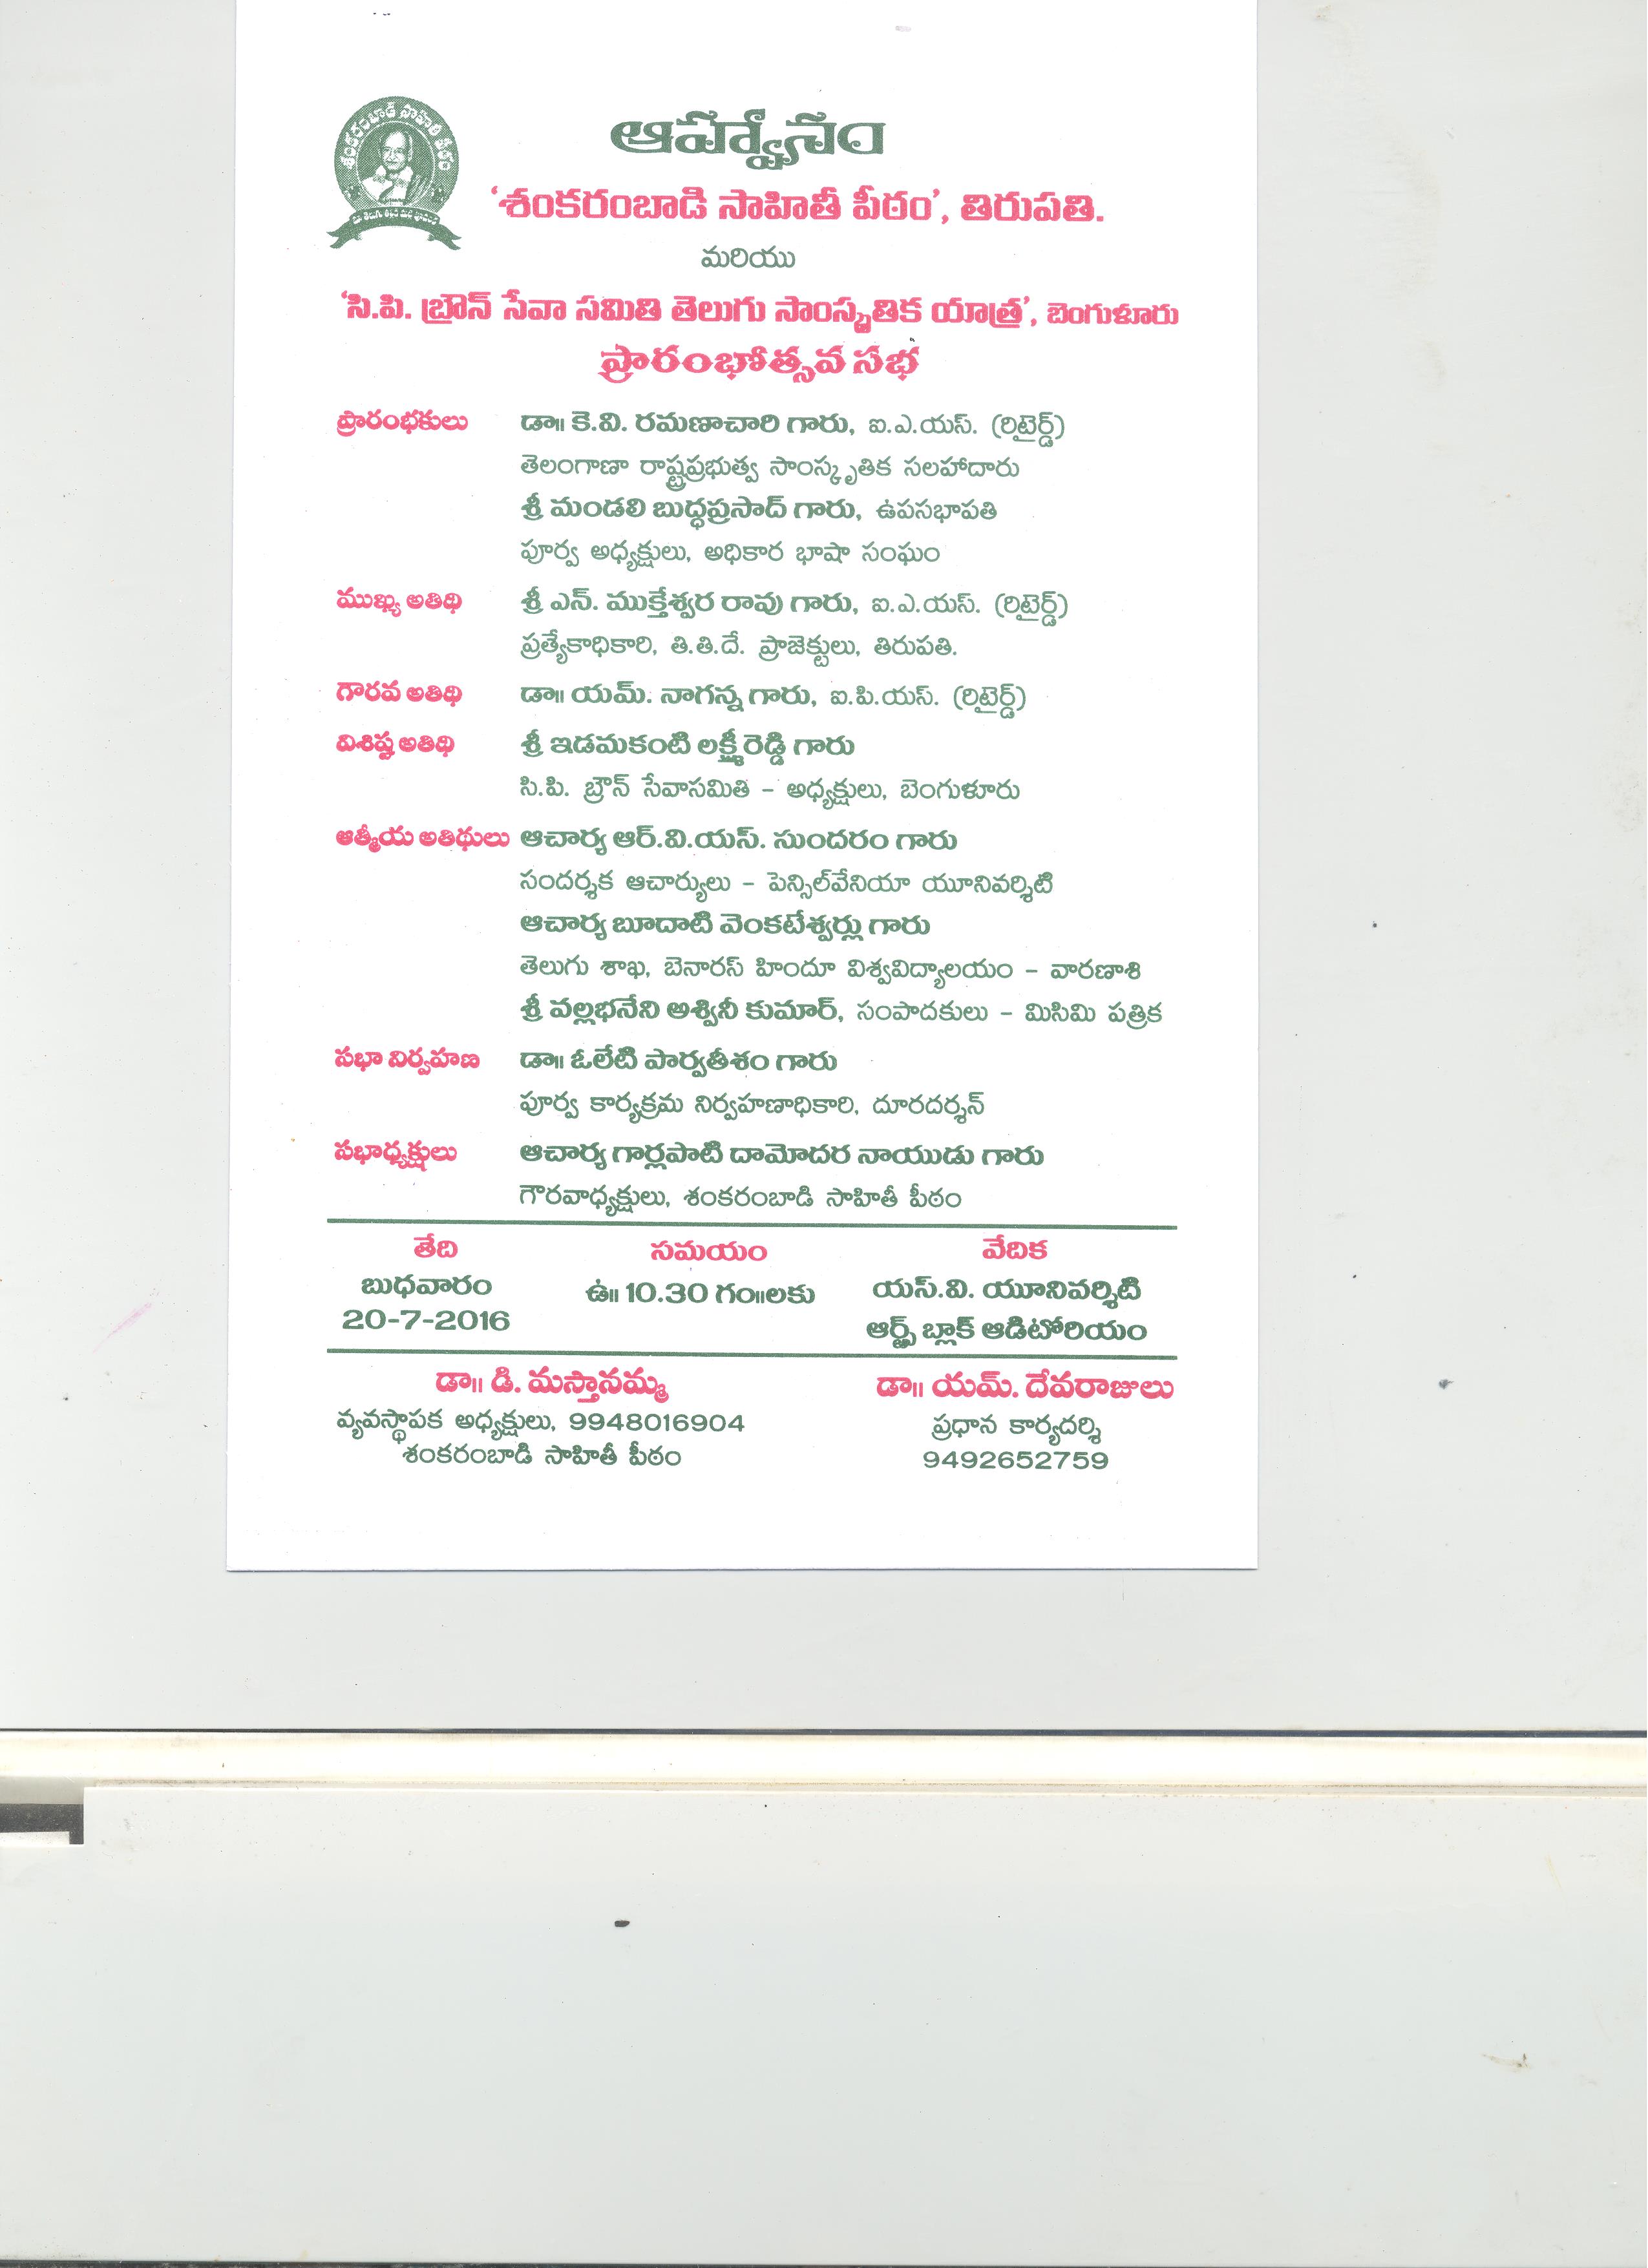 శంకరంబాడి సాహితీ పీఠం
ఆహ్వానం
‘శంకరంబాడి సాహితీ పీఠం’, తిరుపతి.
మరియు
‘సి.పి. బ్రౌన్ సేవా సమితి తెలుగు సాంస్కృతిక యాత్ర’, బెంగుళూరు
ప్రారంభోత్సవ సభ
ప్రారంభకులు డా॥ కె.వి. రమణాచారి గారు, ఐ.ఎ.యస్. (రిటైర్డ్)
తెలంగాణా రాష్ట్రప్రభుత్వ సాంస్కృతిక సలహాదారు
శ్రీ మండలి బుద్ధప్రసాద్ గారు, ఉపసభాపతి
పూర్వ అధ్యక్షులు, అధికార భాషా సంఘం
ముఖ్య అతిథి శ్రీ ఎన్. ముక్తేశ్వర రావు గారు, ఐ.ఎ.యస్. (రిటైర్డ్)
ప్రత్యేకాధికారి, తి.తి.దే. ప్రాజెక్టులు, తిరుపతి.
గౌరవ అతిథి డా॥ యమ్. నాగన్న గారు, ఐ.పి.యస్. (రిటైర్డ్)
విశిష్ట అతిథి శ్రీ ఇడమకంటి లక్ష్మీరెడ్డి గారు
సి.పి. బ్రౌన్ సేవాసమితి – అధ్యక్షులు, బెంగుళూరు
ఆత్మీయ అతిథులు ఆచార్య ఆర్.వి.యస్. సుందరం గారు
సందర్శక ఆచార్యులు – పెన్సిల్‌వేనియా యూనివర్శిటి
ఆచార్య బూదాటి వెంకటేశ్వర్లు గారు
తెలుగు శాఖ, బెనారస్ హిందూ విశ్వవిద్యాలయం – వారణాశి
శ్రీ వల్లభనేని అశ్వినీ కుమార్, సంపాదకులు – మిసిమి పత్రిక
సభా నిర్వహణ డా॥ ఓలేటి పార్వతీశం గారు
పూర్వ కార్యక్రమ నిర్వహణాధికారి, దూరదర్శన్
సభాధ్యక్షులు ఆచార్య గార్లపాటి దామోదర నాయుడు గారు
గౌరవాధ్యక్షులు, శంకరంబాడి సాహితీ పీఠం
తేది సమయం వేదిక
బుధవారం ఉ॥ 10.30 గం॥లకు యస్.వి. యూనివర్శిటి
20-7-2016 ఆర్ట్స్ బ్లాక్ ఆడిటోరియం
డా॥ డి. మస్తానమ్మ డా॥ యమ్. దేవరాజులు
వ్యవస్థాపక అధ్యక్షులు, 9948016904 ప్రధాన కార్యదర్శి
శంకరంబాడి సాహితీ పీఠం 9492652759